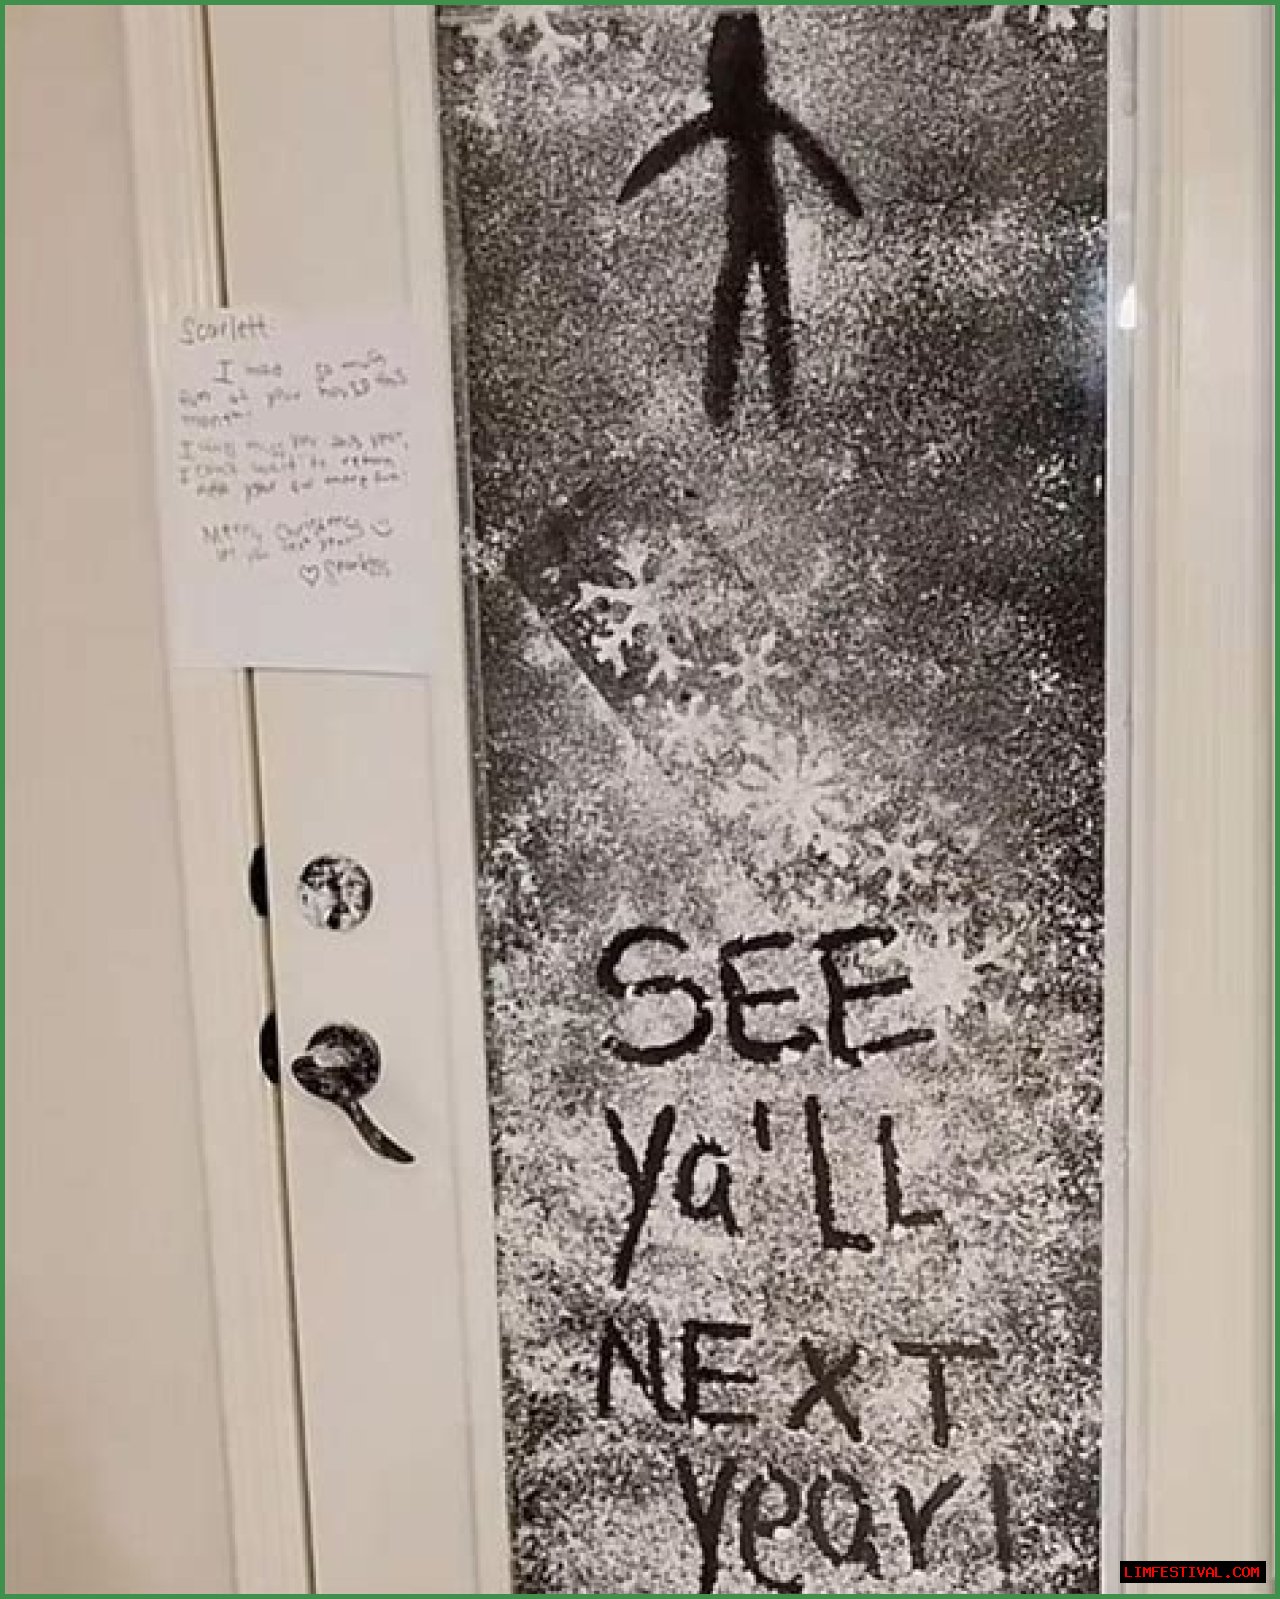 Scarlett
I had so much
fun at your house this
month!
I will miss you this year,
I can't wait to return
next year for more fun!
Merry Christmas
see you next year
♡ Sparkles
SEE
Ya'LL
NEXT
year!
LIMFESTIVAL.COM